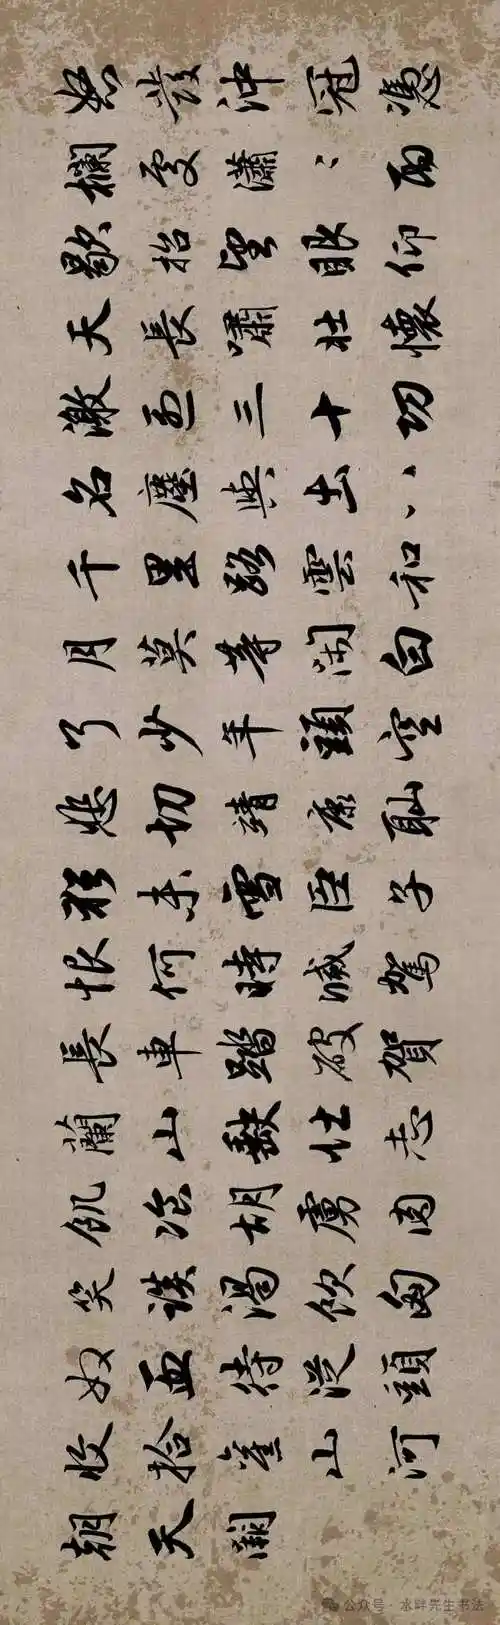 怒發沖冠憑
欄處瀟、雨
歇抬望眼仰
天長嘯壯懷
激烈三十功
名塵與土八
千里路雲和
月莫等閑白
了少年頭空
悲切靖康恥
猶未雪臣子
恨何時滅駕
長車踏破賀
蘭山缺壯志
飢飡胡虜肉
笑談渴飲匈
奴血待從頭
收拾舊山河
朝天闕
公众号·水畔先生书法